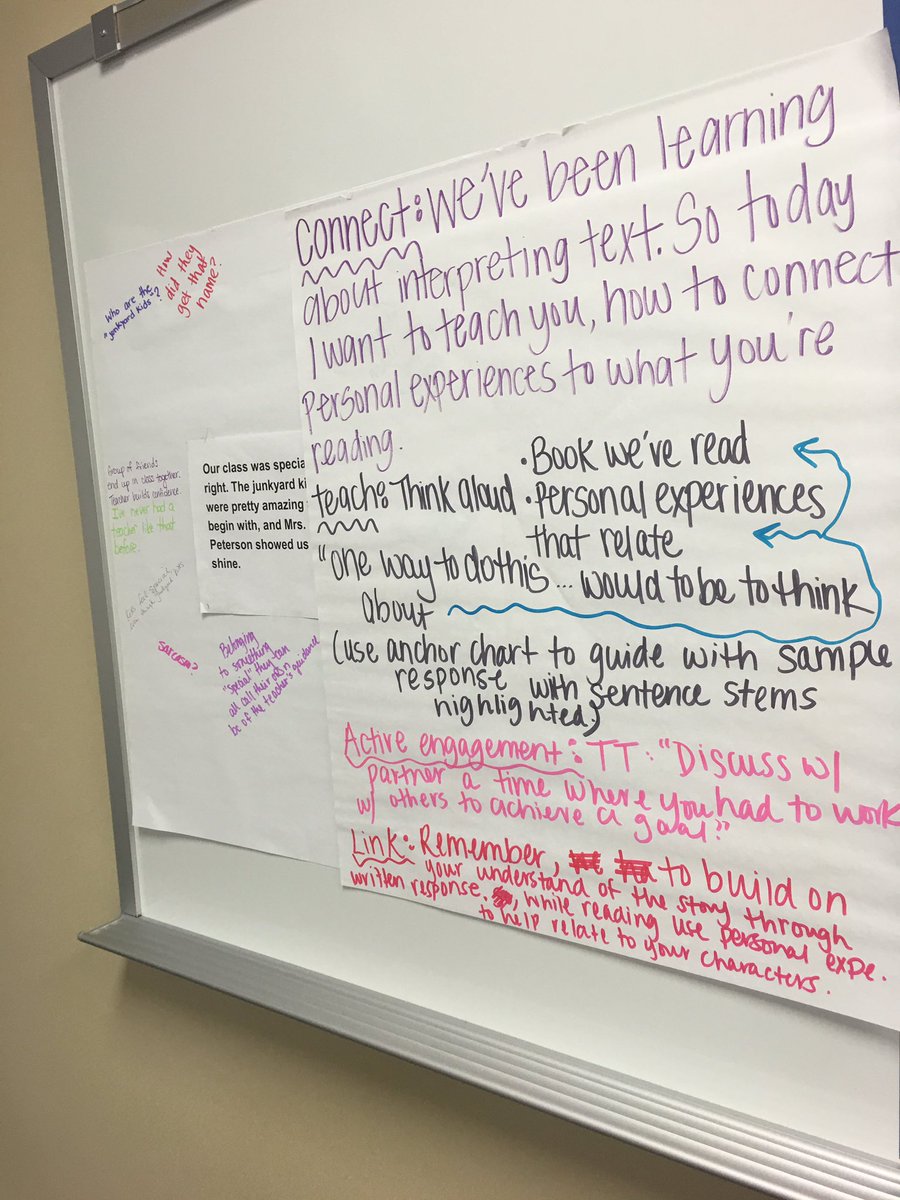 Who are the
"junkyard kids"?
How
did they
get that
name?
Group of friends
end up in class together.
Teacher builds confidence.
I've never had a
teacher like that
before.
Our class was specia
right. The junkyard ki
were pretty amazing
begin with, and Mrs.
Peterson showed us
shine.
Sarcasm?
Belonging
to something
"special" they can
all call their own
bc of the teacher's guidance
Connect: We've been learning
about interpreting text. So today
I want to teach you, how to connect
personal experiences to what you're
reading.
Teach: Think aloud
• Book we've read
• Personal experiences
that relate
"one way to do this... would to be to think
about
(use anchor chart to guide with sample
response with sentence stems
highlighted)
Active engagement: TT: "Discuss w/
partner a time where you had to work
w/ others to achieve a goal."
Link: Remember, to build on
your understand of the story through
written response, while reading use personal expe.
to help relate to your characters.